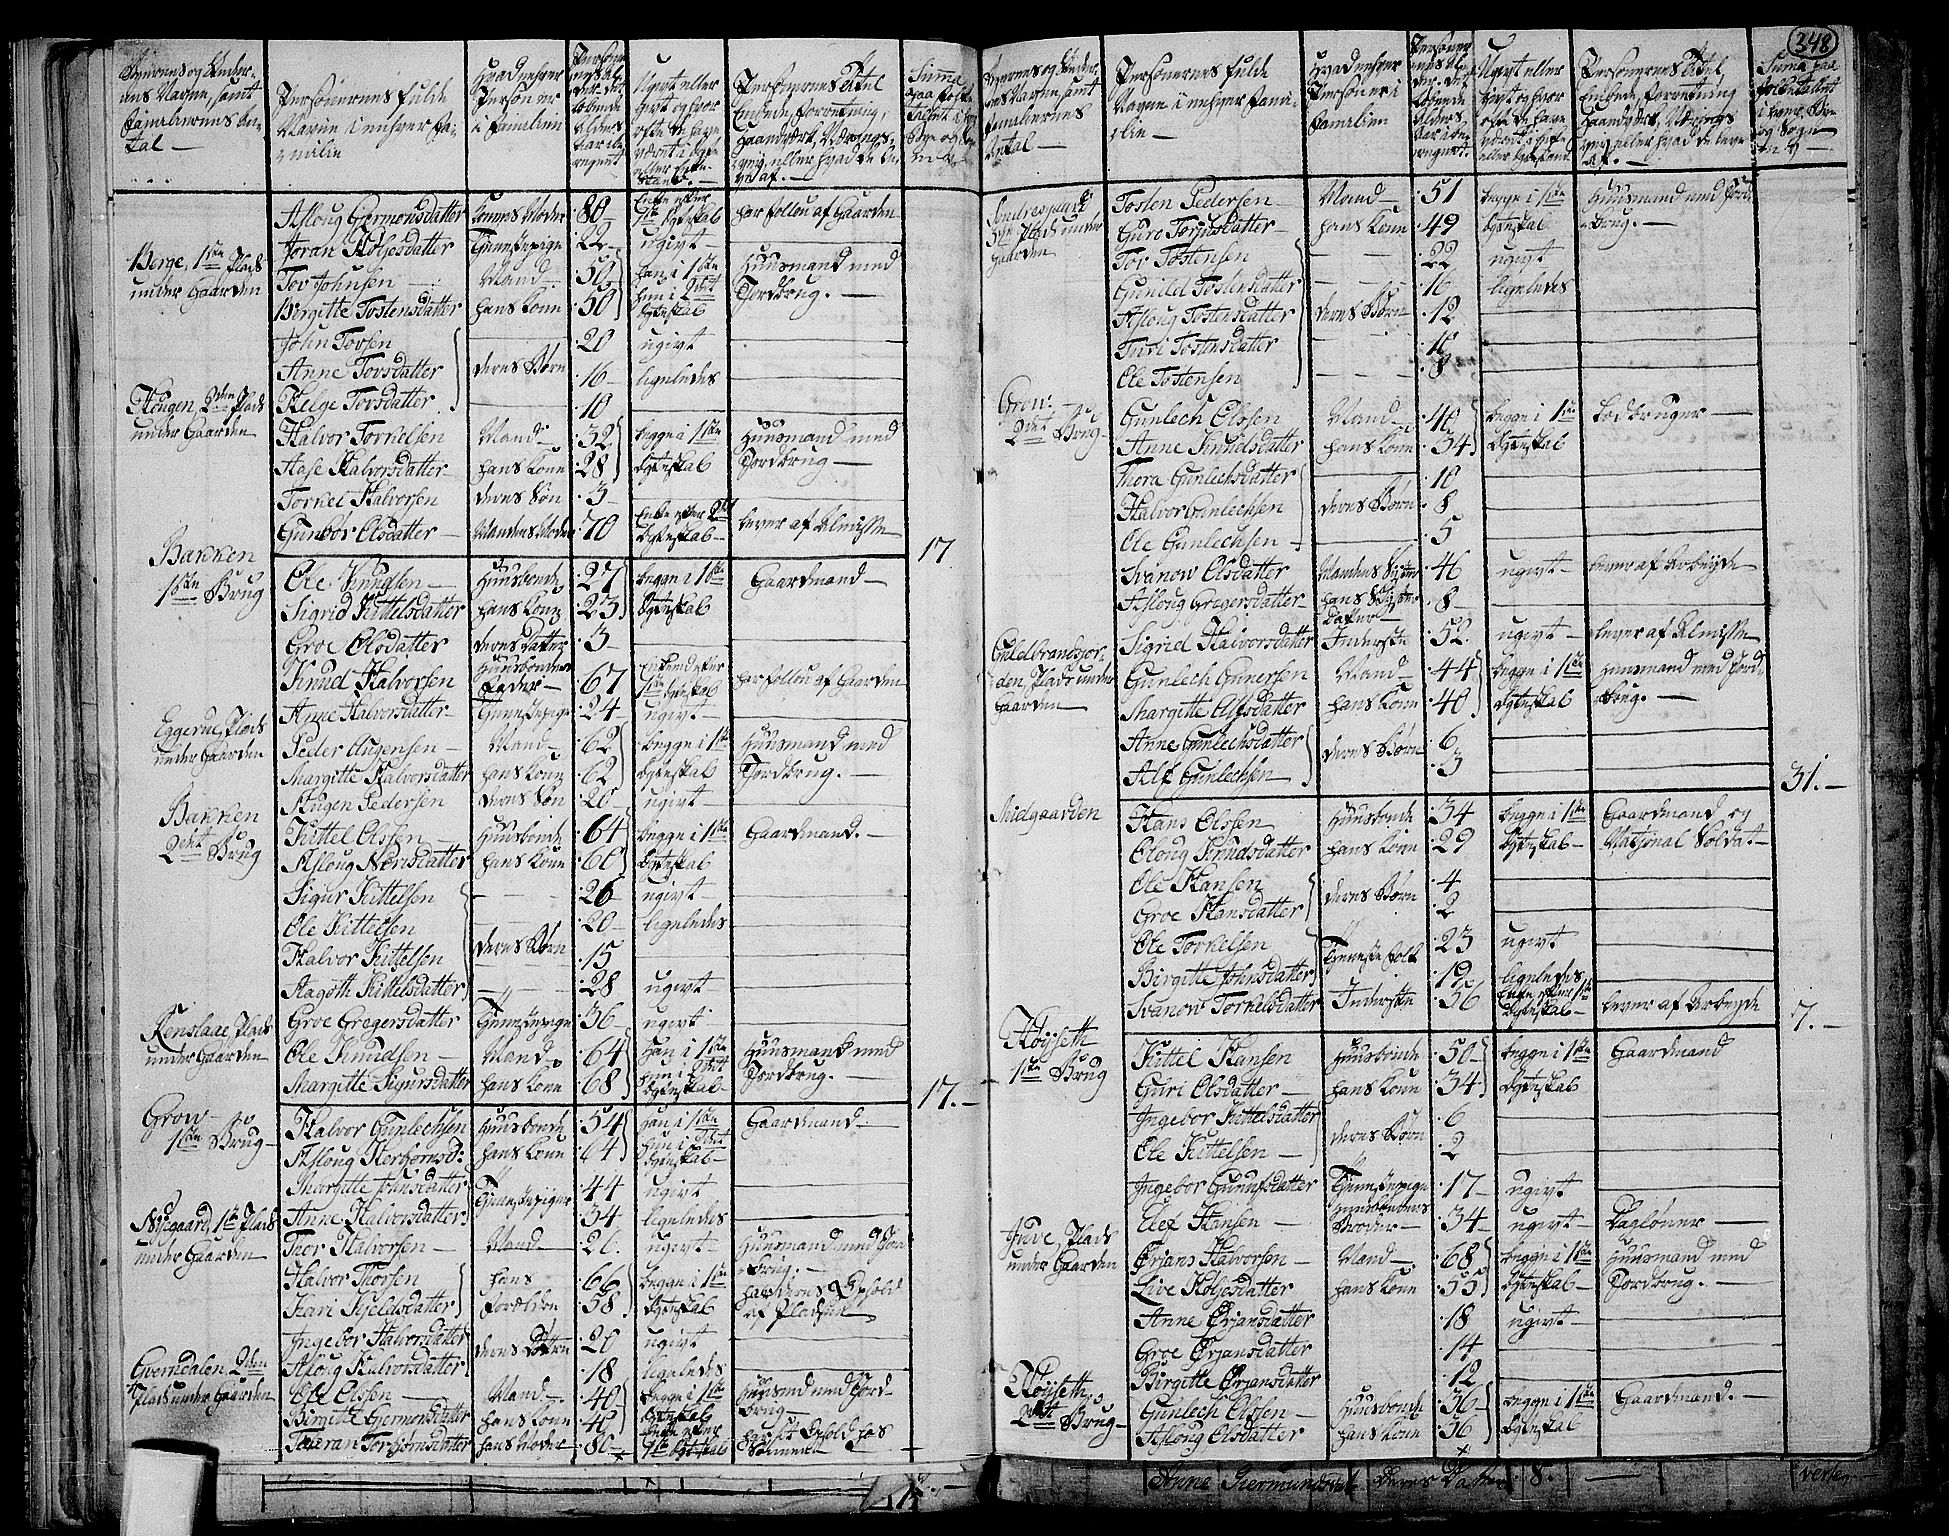 Personernes fulde
Navne i enhver Fa-
milie
Hvad enhver
Person er
i Familien
Asloug Germonsdatter Konens Moder 80 Enke efter 1ste Egteskab har follou af Gaarden
Joran Holjesdatter Tienestepige 22 ugivt
Berge, 1ste Plads under Gaarden
Tov Johnsen Mand 50 han i 1ste Huusmand med
Birgitte Tostensdatter hans Kone 50 hun i 2det Egteskab Jordbrug.
John Tovsen 20 ugivt
Anne Tovsdatter deres Børn 16 ligeledes
Helge Tovsdatter 10
Hougen, 2den Plads under Gaarden
Halvor Torkelsen Mand 32 begge i 1ste Huusmand med
Aase Halvorsdatter hans Kone 28 Egteskab Jordbrug
Torkel Halvorsen deres Søn 3
Gunbor Olsdatter Mandens Moder 70 Enke efter 2det Egteskab lever af Almisse
17
Bakken 1ste Brug
Ole Knudsen Huusbonde 27 begge i 1ste Gaardmand
Sigrid Kittelsdatter hans Kone 23 Egteskab
Groe Olsdatter deres Datter 3
Knud Halvorsen Huusbondens Fader 67 Enkemand efter 1ste Egteskab har follou af Gaarden
Anne Halvorsdatter Tienestepige 24 ugivt
Eggerue, Plads under Gaarden
Peder Augensen Mand 62 begge i 1ste Huusmand med
Margitte Halvorsdatter hans Kone 62 Egteskab Jordbrug.
Augen Pedersen deres Søn 20 ugivt
Bakken 2det Brug
Kittel Olssen Huusbonde 64 begge i 1ste Gaardmand.
Asloug Nerisdatter hans Kone 60 Egteskab
Sigur Kittelsen 26 ugivt
Ole Kittelsen 20 ligeledes
Halvor Kittelsen deres Børn 15
Aagoth Kittelsdatter 28 ugivt
Groe Gregersdatter Tienestepige 36 ugivt
Kenslaae, Plads under Gaarden
Ole Knudsen Mand 64 han i 1ste Huusmand med
Margitte Sigursdatter hans Kone 68 hun i 2det Egteskab Jordbrug.
17.
Grow 1ste Brug
Halvor Gunlechsen Huusbonde 54 han i 1ste Gaardmand
Asloug Herbjornsd: hans Kone 64 hun i 2det Egteskab
Margitte Johnsdatter Tienestepiger 44 ugivt
Anne Halvorsdatter 34 ligeledes
Nygaard, 1ste Plads under Gaarden
Thor Halvorsen Mand 26. ugivt Huusmand med Jordbrug.
Halvor Thorsen hans 66 begge i 1ste
Kari Kjeldsdatter Forældre 58 Egteskab af Pladsen
Ingebor Halvorsdatter deres Døttre 20 ugivt
Asloug Halvorsdatter 18 ligeledes
Gverndalen, 2den Plads under Gaarden
Ole Olssen Mand 40 begge i 1ste Huusmd med Jordbrug
Birgitte Germonsdatter hans Kone 40 Egteskab
Tauran Torbjørnsdatter hans Moder 80 Enke efter 1ste Egteskab har sit Ophold hos Sønnen
348
Personernes fulde
Navne i enhver Fami-
lie
Hvad enhver
Person er i
Familien
Søndrespaet 3die Plads under Gaarden
Tosten Pedersen Mand 51 begge i 1ste Huusmand med Jord-
Guro Torjusdatter hans Kone 49 Egteskab brug.
Tor Tostensen 22 ugivt
Gunild Tostensdatter 16 ligeledes
Asloug Tostensdatter deres Børn 12
Turi Tostensdatter 10
Ole Tostensen 8
Grow. 2det Brug
Gunlech Olssen Mand 40 begge i 1ste Lodbruger
Anne Knudsdatter hans Kone 34 Egteskab
Thora Gunlechsdatter 10
Halvor Gunlechsen deres Børn 8
Ole Gunlechsen 5
Svanow Olsdatter Mandens Syster 46 ugivt lever af Arbeyde
Asloug Gregersdatter hans Syster Datter 8
Sigrid Halvorsdatter Inderste 52 ugivt lever af Almisse
Guldbrandsjorden, Plads under Gaarden
Gunlech Gunersen Mand 44 begge i 1ste Huusmand med Jord-
Margitte Alfsdatter hans Kone 40 Egteskab brug.
Anne Gunlechsdatter deres Børn 6
Alf Gunlechsen 3
31.
Midgaarden
Hans Olssen Huusbonde 34 begge i 1ste Gaardmand og
Oloug Knudsdatter hans Kone 29 Egteskab National Soldat
Ole Hansen deres Børn 4
Groe Hansdatter 2
Ole Torkelsen Tieneste Folk 23 ugivt
Birgitte Johnsdatter 19 ligeledes
Svanow Torkelsdatter Inderste 56 Enke efter 1ste Egteskab lever af Arbeyde
7.
Høyseth 1ste Brug
Kittel Hansen Huusbonde 50 begge i 1ste Gaardmand
Guri Olsdatter hans Kone 34 Egteskab
Ingebor Kittelsdatter deres Børn 6
Ole Kittelsen 2
Ingebor Gunufsdatter Tienestepige 17 ugivt
Olef Hansen Huusbondens Broder 34 ugivt Dagløner
Juve, Plads under Gaarden
Ørjans Halvorsen Mand 68 begge i 1ste Huusmand med
Live Holjesdatter hans Kone 55 Egteskab Jordbrug.
Anne Ørjansdatter 18 ugivt
Groe Ørjansdatter 14
Birgitte Ørjansdatter 12
Høyseth 2det Brug
Gunlech Olssen Huusbonde 36 begge i 1ste Gaardmand.
Asloug Olsdatter hans Kone 36 Egteskab
Anne Giermundsdat deres Datter 8.
verte